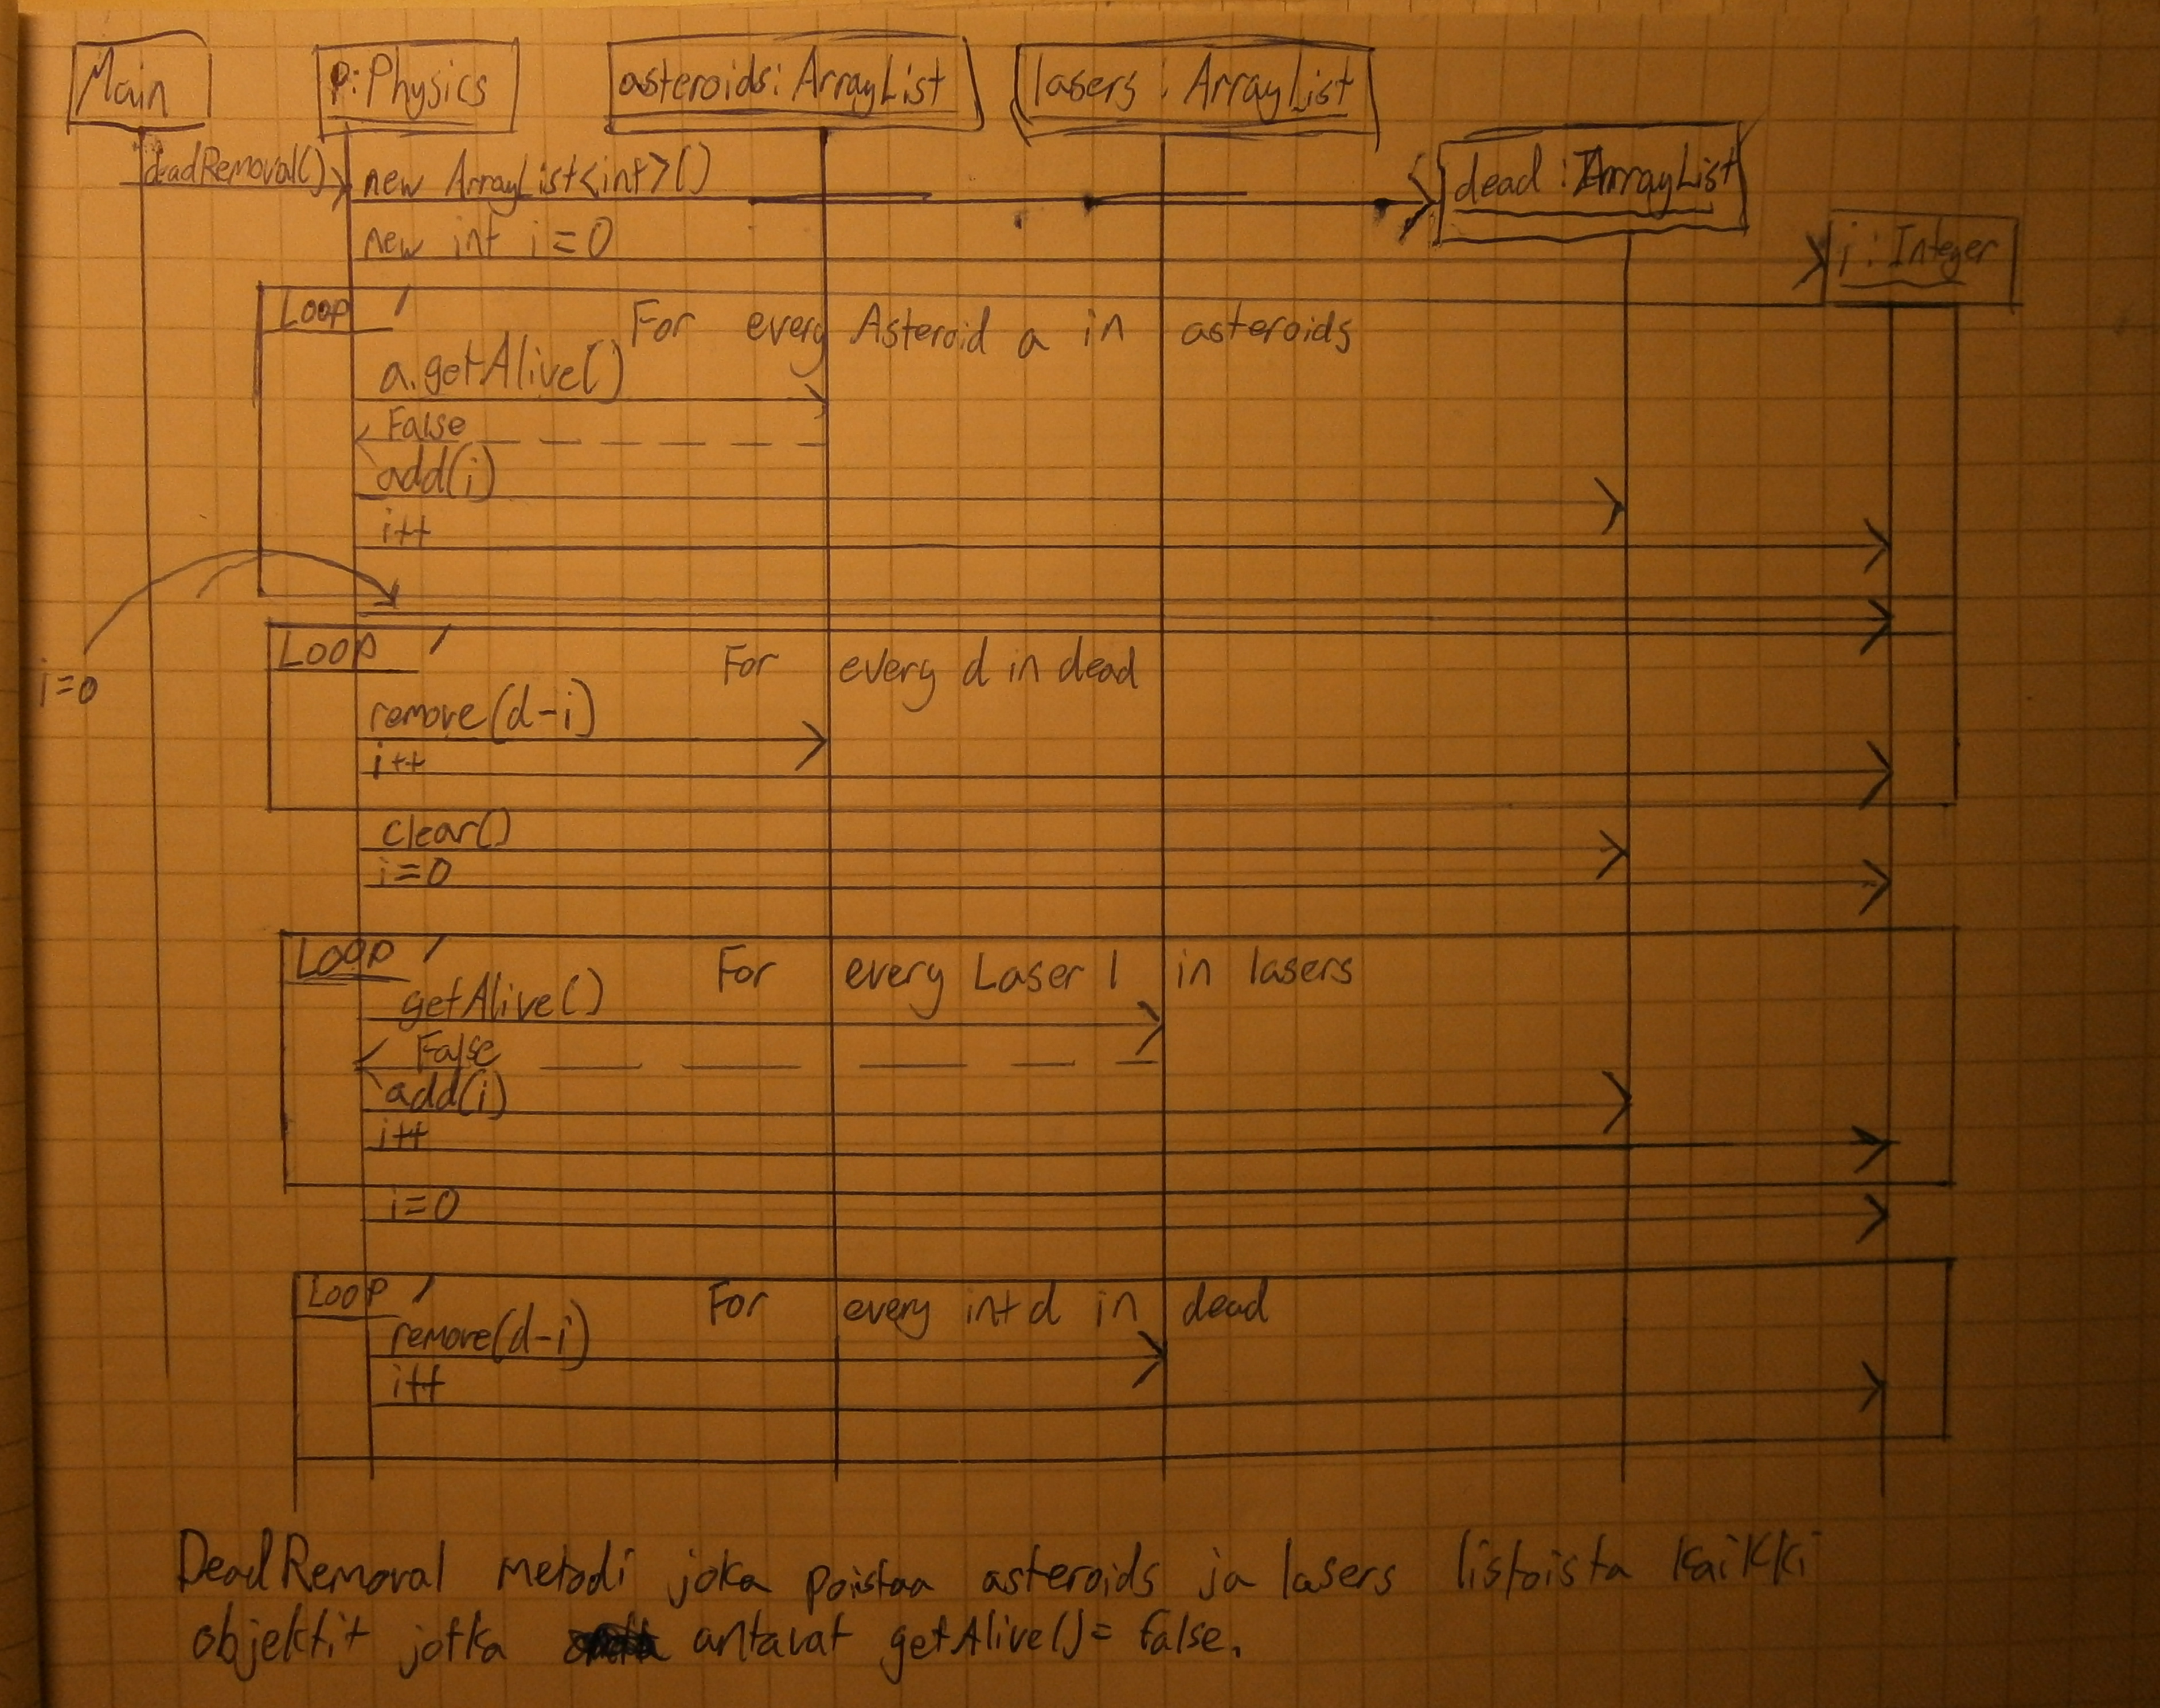 Main
p:Physics
asteroids: ArrayList
lasers : ArrayList
deadRemoval()
new ArrayList<int>()
dead : ArrayList
new int i=0
i: Integer
Loop
For every Asteroid a in asteroids
a.getAlive()
False
add(i)
i++
i=0
Loop
For every d in dead
remove(d-i)
i++
clear()
i=0
Loop
For every Laser l in lasers
getAlive()
False
add(i)
i++
i=0
Loop
For every int d in dead
remove(d-i)
i++
DeadRemoval metodi joka poistaa asteroids ja lasers listoista kaikki
objektit jotka antavat getAlive()= false.